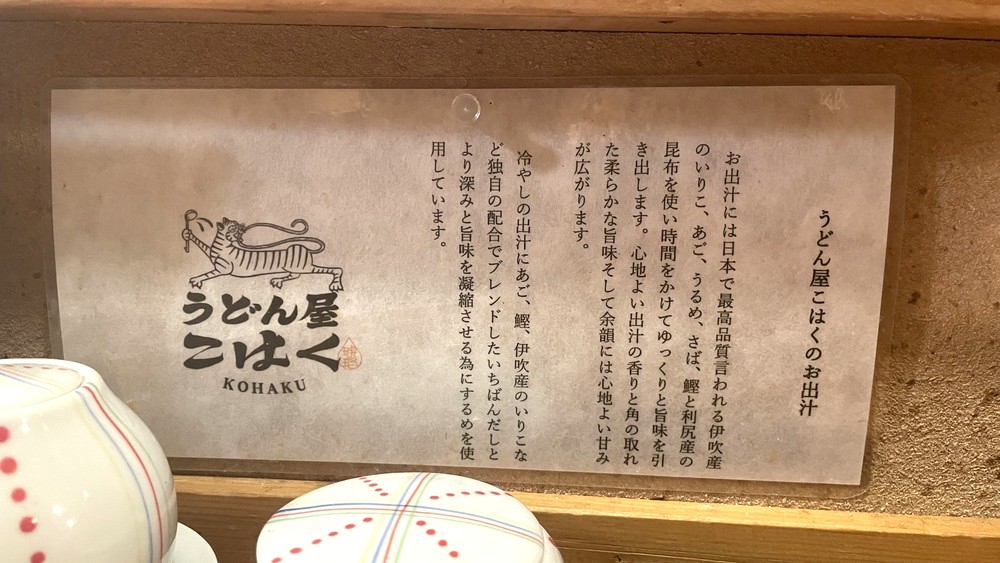 うどん屋こはくのお出汁
お出汁には日本で最高品質言われる伊吹産
のいりこ、あご、うるめ、さば、鰹と利尻産の
昆布を使い時間をかけてゆっくりと旨味を引
き出します。心地よい出汁の香りと角の取れ
た柔らかな旨味そして余韻には心地よい甘み
が広がります。
冷やしの出汁にあご、鰹、伊吹産のいりこな
ど独自の配合でブレンドしたいちばんだしと
より深みと旨味を凝縮させる為にするめを使
用しています。
うどん屋
こはく
KOHAKU